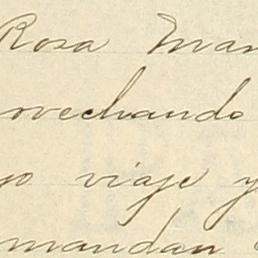 Rosa Man
ovechando
yo viaje y
mandan